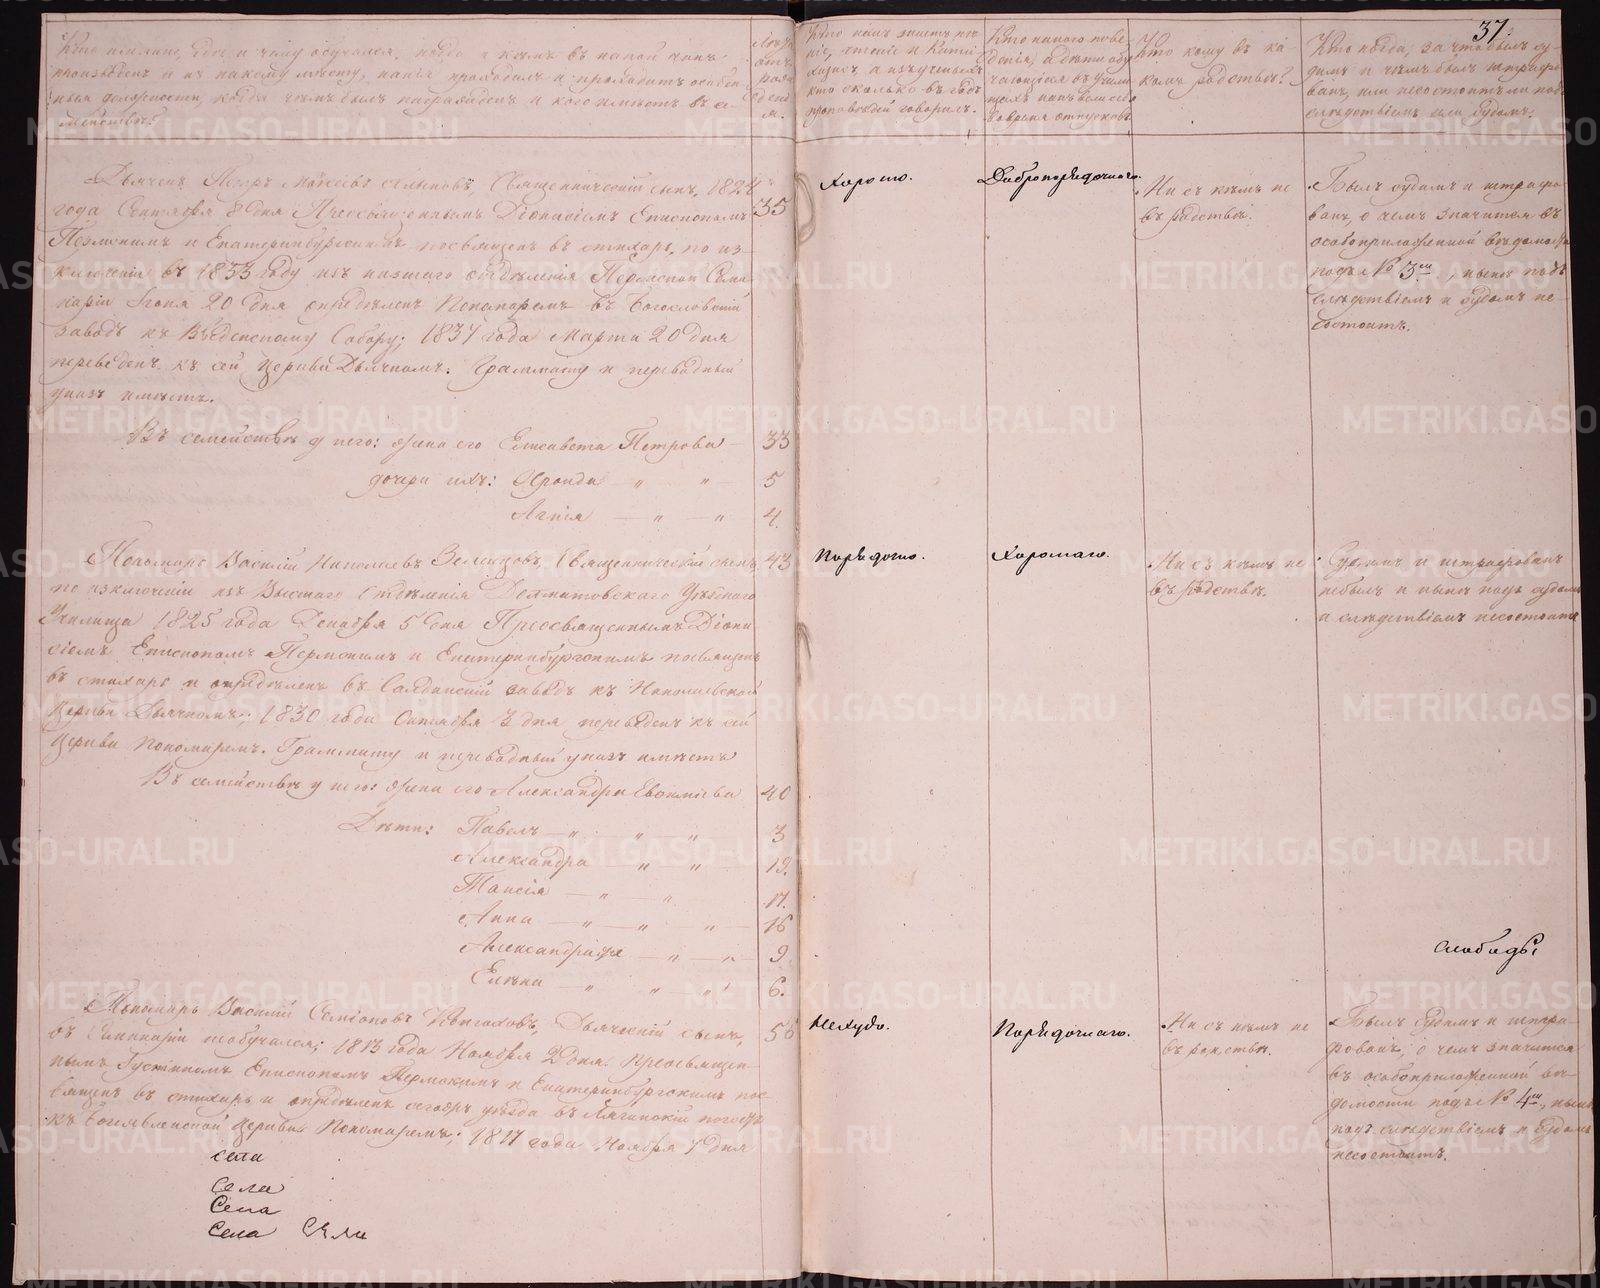 37.
Кто именно, где и чему обучался, когда и кѣмъ въ какой чинъ
произведенъ и къ какому мѣсту, какія проходилъ и проходитъ особен
ныя должности, когда чѣмъ былъ награжденъ и кого имѣетъ въ се-
мействѣ?
Лѣта
отъ
рожд
енi
я.
Кто какъ знаетъ пѣ
ніе, чтеніе и Кати
хизисъ, а изъ ученыхъ
кто сколько въ годъ
проповѣдей говорилъ.
Кто какого пове
денія, а дѣти обу
чающіяся въ Учили
щахъ какъ вели себя
во время отпусковъ
Кто кому въ ка
комъ родствѣ?
Кто когда, за что былъ су-
димъ и чѣмъ былъ штрафо
ванъ, или не состоитъ ли подъ
слѣдствіемъ или судомъ.
Дьячекъ Священническій сынъ, 1824
года Сентября 8 дня Преосвященнымъ Діонисіемъ Епископомъ
Пермскимъ и Екатеринбургскимъ посвященъ въ стихарь, по из-
ключеніи въ 1833 году изъ низшаго отдѣленія Пермской Семи
наріи Іюня 20 дня опредѣленъ Пономаремъ въ Богословскій
заводъ къ Введенскому Собору; 1837 года Марта 20 дня
переведенъ къ сей Церкви Дьячкомъ. Грамматy и переводный
указъ имѣетъ.
35
Хорошо.
Добропорядочнаго.
Ни съ кѣмъ не
въ родствѣ.
Былъ судимъ и штрафо
ванъ, о чемъ значится въ
особоприложенной вѣдомости
подъ № 3мъ, нынѣ подъ
слѣдствіемъ и судомъ не
состоитъ.
Въ семействѣ у него: жена его Елисавета Петрова — 33
дочери ихъ: Ираида — „ — „ — 5
Агнія — „ — „ 4.
Пономарь Василій Николаевъ Священническій сынъ, 43
по изключеніи изъ Высшаго отдѣленія Далматовскаго Уѣзднаго
Училища 1825 года Декабря 5 дня Преосвященнымъ Діони
сіемъ Епископомъ Пермскимъ и Екатеринбургскимъ посвященъ
въ стихарь и опредѣленъ въ Салдинскій заводъ къ Николаевской
Церкви Дьячкомъ; 1830 года Октября 3 дня переведенъ къ сей
Церкви Пономаремъ. Грамматy и переводный указъ имѣетъ
Порядочно.
Хорошаго.
Ни съ кѣмъ не
въ родствѣ.
Судимъ и штрафованъ
небылъ и нынѣ подъ судомъ
и слѣдствіемъ несостоитъ
Въ семействѣ у него: жена его Александра Евфиміева 40
Дѣти: Павелъ — „ „ „ 3
Александра „ „ 19.
Таисія — „ „ 17.
Анна — „ — „ „ — 16
Александра — „ — „ — 9
Елена — „ „ „ 6.
Слободы
Пономарь Василій Симіоновъ Дьяческій сынъ, 56
въ Семинаріи не обучался; 1813 года Ноября 2 дня Преосвящен-
нымъ Густиномъ Епископомъ Пермскимъ и Екатеринбургскимъ пос-
вященъ въ стихарь и опредѣленъ сегожъ уѣзда въ погостъ
къ Богоявленской Церкви Пономаремъ; 1817 года Ноября 7 дня
Нехудо.
Порядочнаго.
Ни съ кѣмъ не
въ родствѣ.
Былъ судимъ и штра-
фованъ, о чемъ значится
въ особоприложенной вѣ-
домости подъ № 4мъ, нынѣ
подъ слѣдствіемъ и судомъ
несостоитъ.
села
Села
Села
Села Села
METRIKI.GASO-URAL.RU